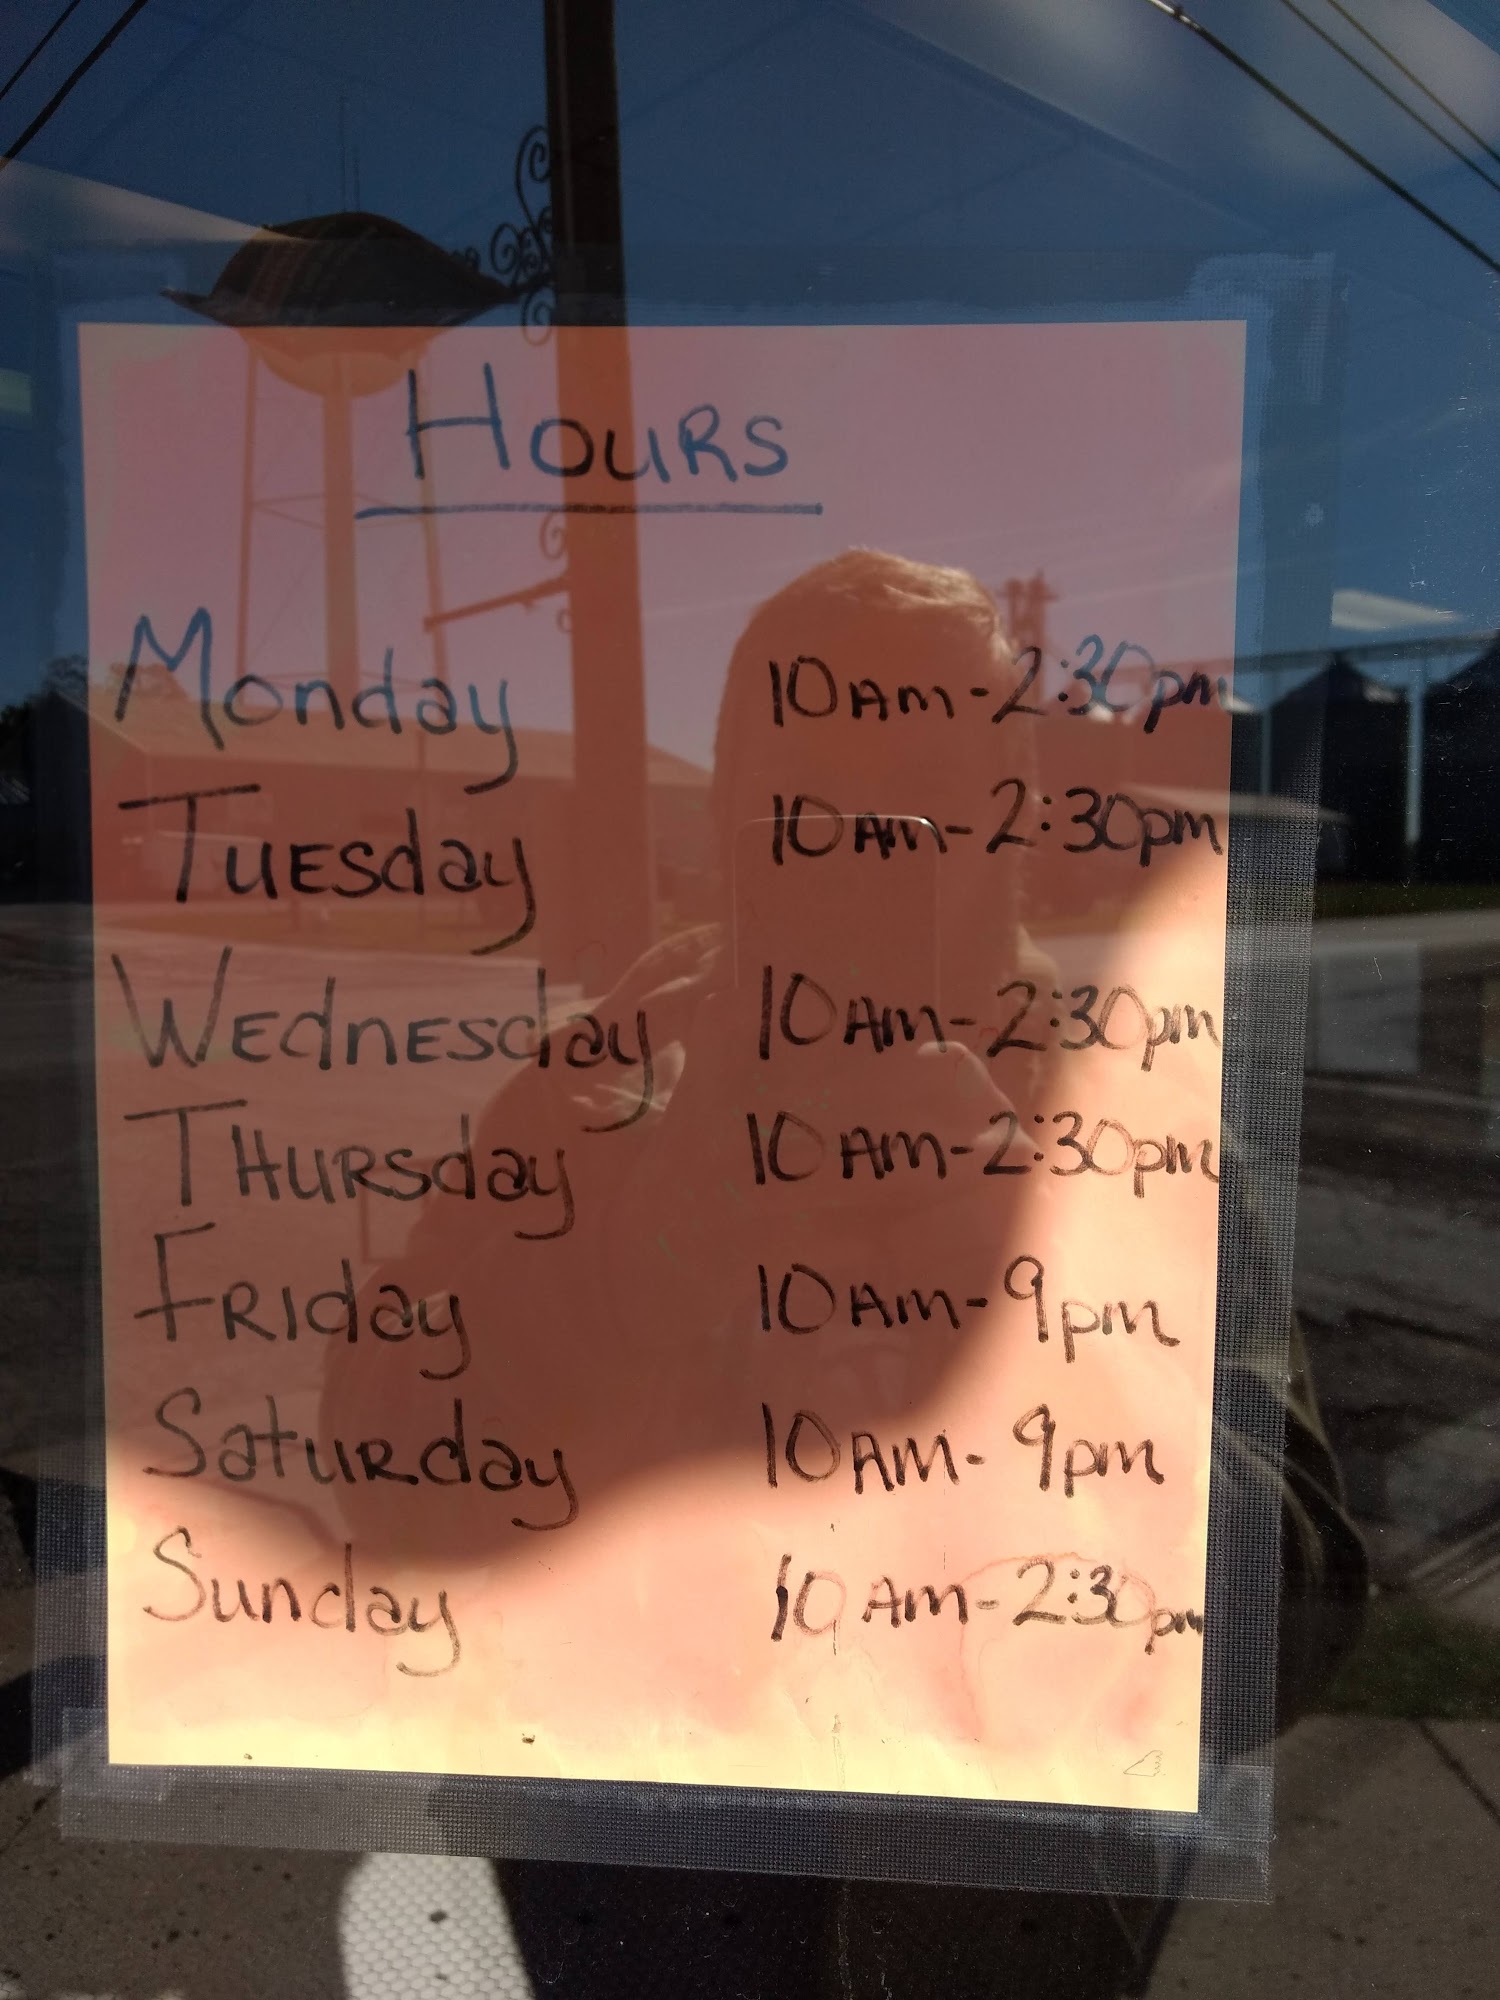 Hours
Monday 10AM-2:30pm
Tuesday 10AM-2:30pm
Wednesday 10AM-2:30pm
Thursday 10AM-2:30pm
Friday 10AM-9pm
Saturday 10AM-9pm
Sunday 10AM-2:30pm